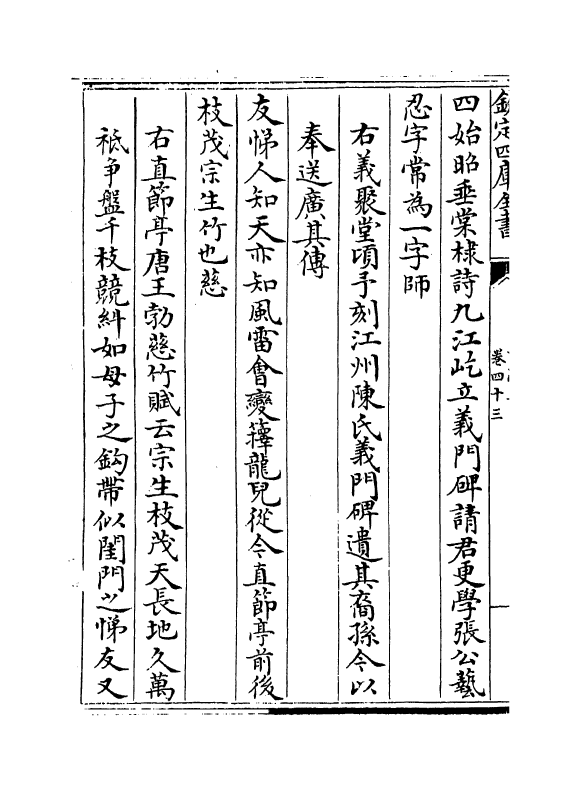 欽定四庫全書
卷四十三
四始昭垂棠棣詩九江屹立義門碑請君更學張公藝
忍字常為一字師
右義聚堂頃予刻江州陳氏義門碑遺其裔孫今以
奉送廣其傳
友悌人知天亦知風雷會變籜龍兒從今直節亭前後
枝茂宗生竹也慈
右直節亭唐王勃慈竹賦云宗生枝茂天長地久萬
祗争盤千枝競糾如母子之鈎帶似閨門之悌友又